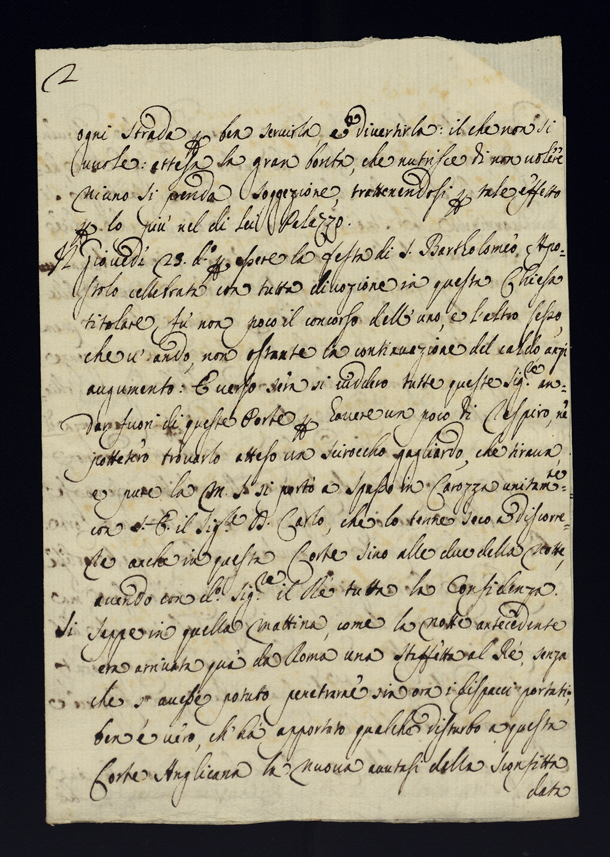 2
ogni strada p ben servirla e divertirla: il che non si
vuole: attesa la gran bontà, che nutrisce di non volere
niuno si prenda soggezione, trattenendosi p tale effetto
p lo più nel di Lei Palazzo.
Giovedì 25. d.o p essere la festa di S. Bartholomeo Apo-
stolo cellebrata con tutta divozione in questa Chiesa
titolare, fù non poco il concorso dell'uno, e l'altro sesso,
che v'andò, non ostante la continuazione del caldo anzi
augumento: E verso sera si viddero tutte queste Sig.re an-
dar fuori di queste Porte p havere un poco di respiro, nè
pottero trovarlo atteso un Scirocho gagliardo, che tirava
e pure la M. S. si portò a spasso in Carozza unitam.te
con S. E. il Sig.r D. Carlo, che lo tenne seco a discorre-
re anche in questa Corte sino alle due della Notte,
avendo con d.o Sig.re il Rè tutta la Confidenza.
Si seppe in quella mattina, come la notte antecedente
era arrivata quà da Roma una Staffetta al Rè, senza
che s'avesse potuto penetrarne sin ora i dispacci portati,
ben è vero, ch'hà apportato qualche disturbo a questa
Corte Anglicana la nuova avutasi della Sconfitta
data